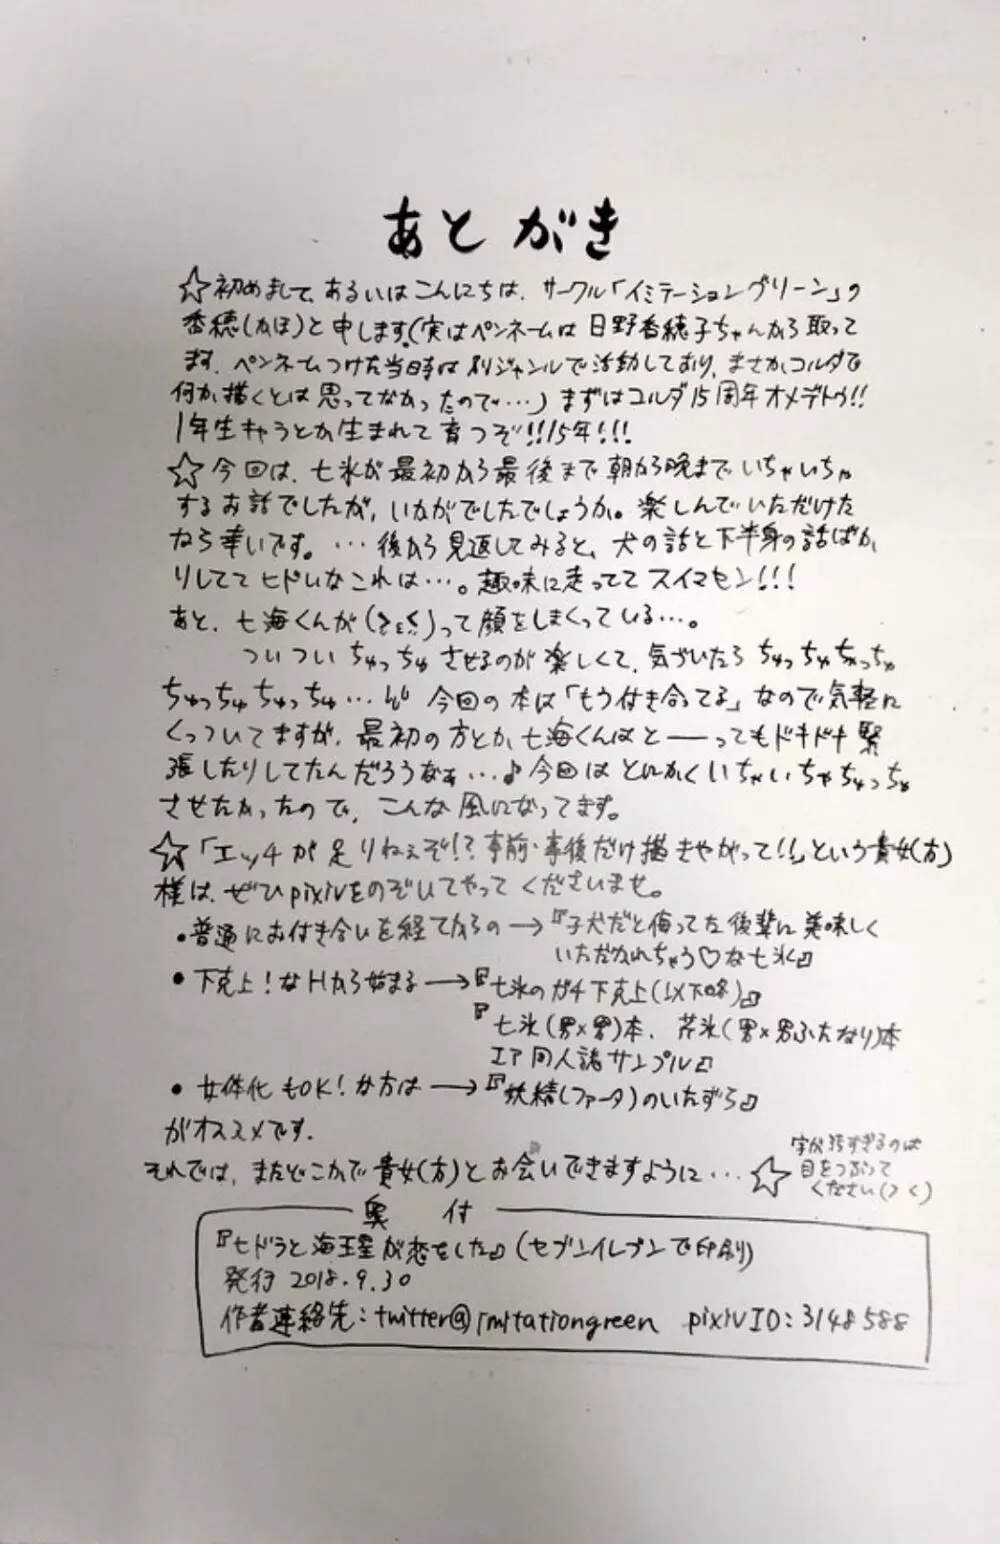 あとがき
☆初めまして、あるいはこんにちは、サークル「イミテーショングリーン」の
香穂(かほ)と申します。(実はペンネームは日野香穂子ちゃんから取って
ます。ペンネームつけた当時は別ジャンルで活動しており、まさかコルダで
何か描くとは思ってなかったので…)まずはコルダ15周年オメデトウ!!
1年生キャラとか生まれて育つぞ!!15年!!!
☆今回は、七氷が最初から最後まで朝から晩までいちゃいちゃ
するお話でしたが、いかがでしたでしょうか。楽しんでいただけた
なら幸いです。…後から見返してみると、犬の話と下半身の話ばか
りしててヒドいなこれは…。趣味に走っててスイマセン!!!
あと、七海くんが(って顔をしまくっている…。
ついついちゅっちゅさせるのが楽しくて、気づいたらちゅっちゅちゅっちゅ
ちゅっちゅちゅっちゅ… 今回の本は「もう付き合ってる」なので気軽に
くっついてますが、最初の方とか七海くんはと――ってもドキドキ緊
張したりしてたんだろうなぁ…♪今回はとにかくいちゃいちゃちゅっちゅ
させたかったので、こんな風になってます。
☆「エッチが足りねぇぞ!?事前・事後だけ描きやがって!!」という貴女(方)
様は、ぜひpixivをのぞいてやってくださいませ。
•普通にお付き合いを経てからの→『子犬だと侮ってた後輩に美味しく
いただかれちゃう♡な七氷』
•下克上!なHから始まる→『七氷のガチ下克上(以下略)』
『七氷(男×男)本、芹氷(男×男ふたなり)本
エア同人誌サンプル』
•女体化もOK!な方は→『妖精(ファータ)のいたずら』
がオススメです。
それでは、またどこかで貴女(方)とお会いできますように…☆
字が汚すぎるのは
目をつぶって
ください(>く)
奥付
『七ドラと海王星が恋をした』(セブンイレブンで印刷)
発行 2018.9.30
作者連絡先:twitter@imitationgreen pixivID:3148588